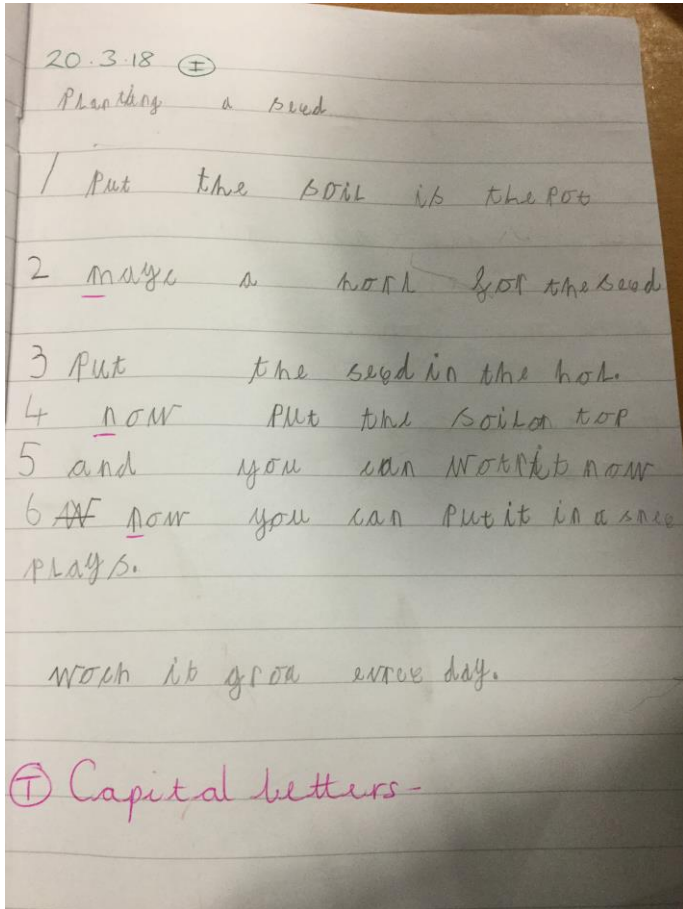 20.3.18 I
Planting a seed
1 Put the soil it the Pot
2 mayc a horl for the seed
3 Put the seed in the hol.
4 now Put the soil on top
5 and you can wotrit now
6 now you can Put it in a snee
plays.
woch it groa evree day.
T Capital letters-